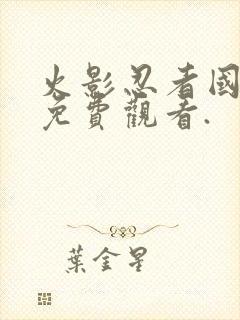 火影忍者國
免費觀看.
葉金星